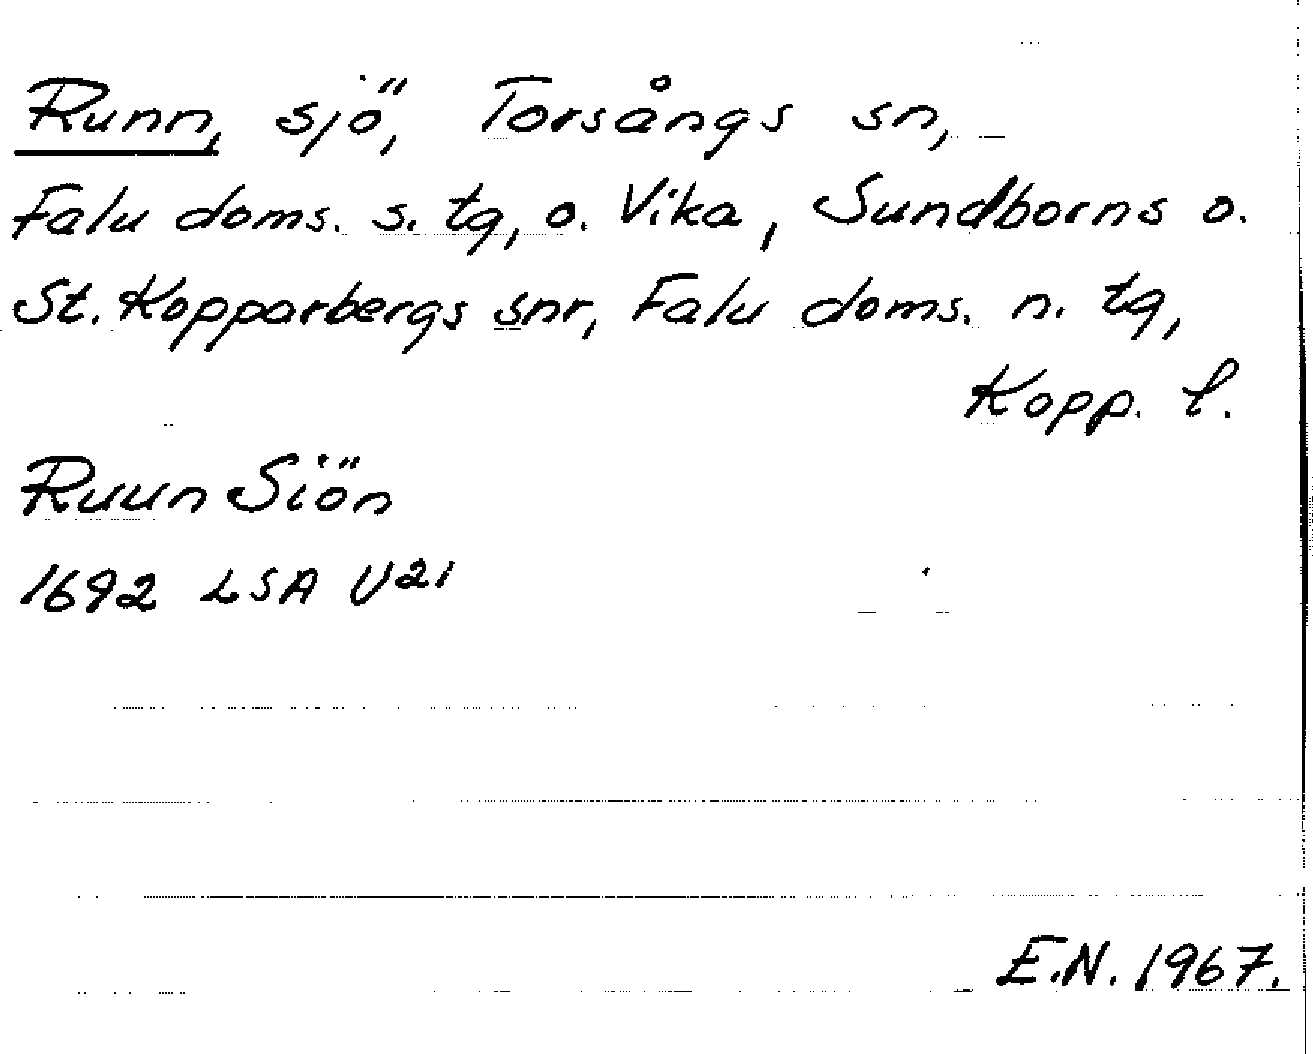 Runn, sjö, Torsångs sn,
Falu doms. s. tg, o. Vika, Sundborns o.
St. Kopparbergs snr, Falu doms. n. tg,
Kopp. l.
Ruun Siön
1692 LSA U21
E.N. 1967.